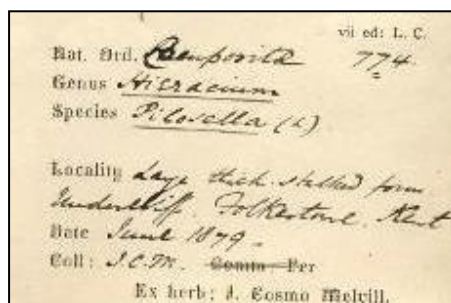 vii ed: L. C.
Nat. Ord. Compositæ 774
Genus Hieracium
Species Pilosella (L)
Locality Large thick-stalked form
Undercliff. Folkestone. Kent
Date June 1879.
Coll: J.C.M. Comm Per
Ex herb: J. Cosmo Melvill.